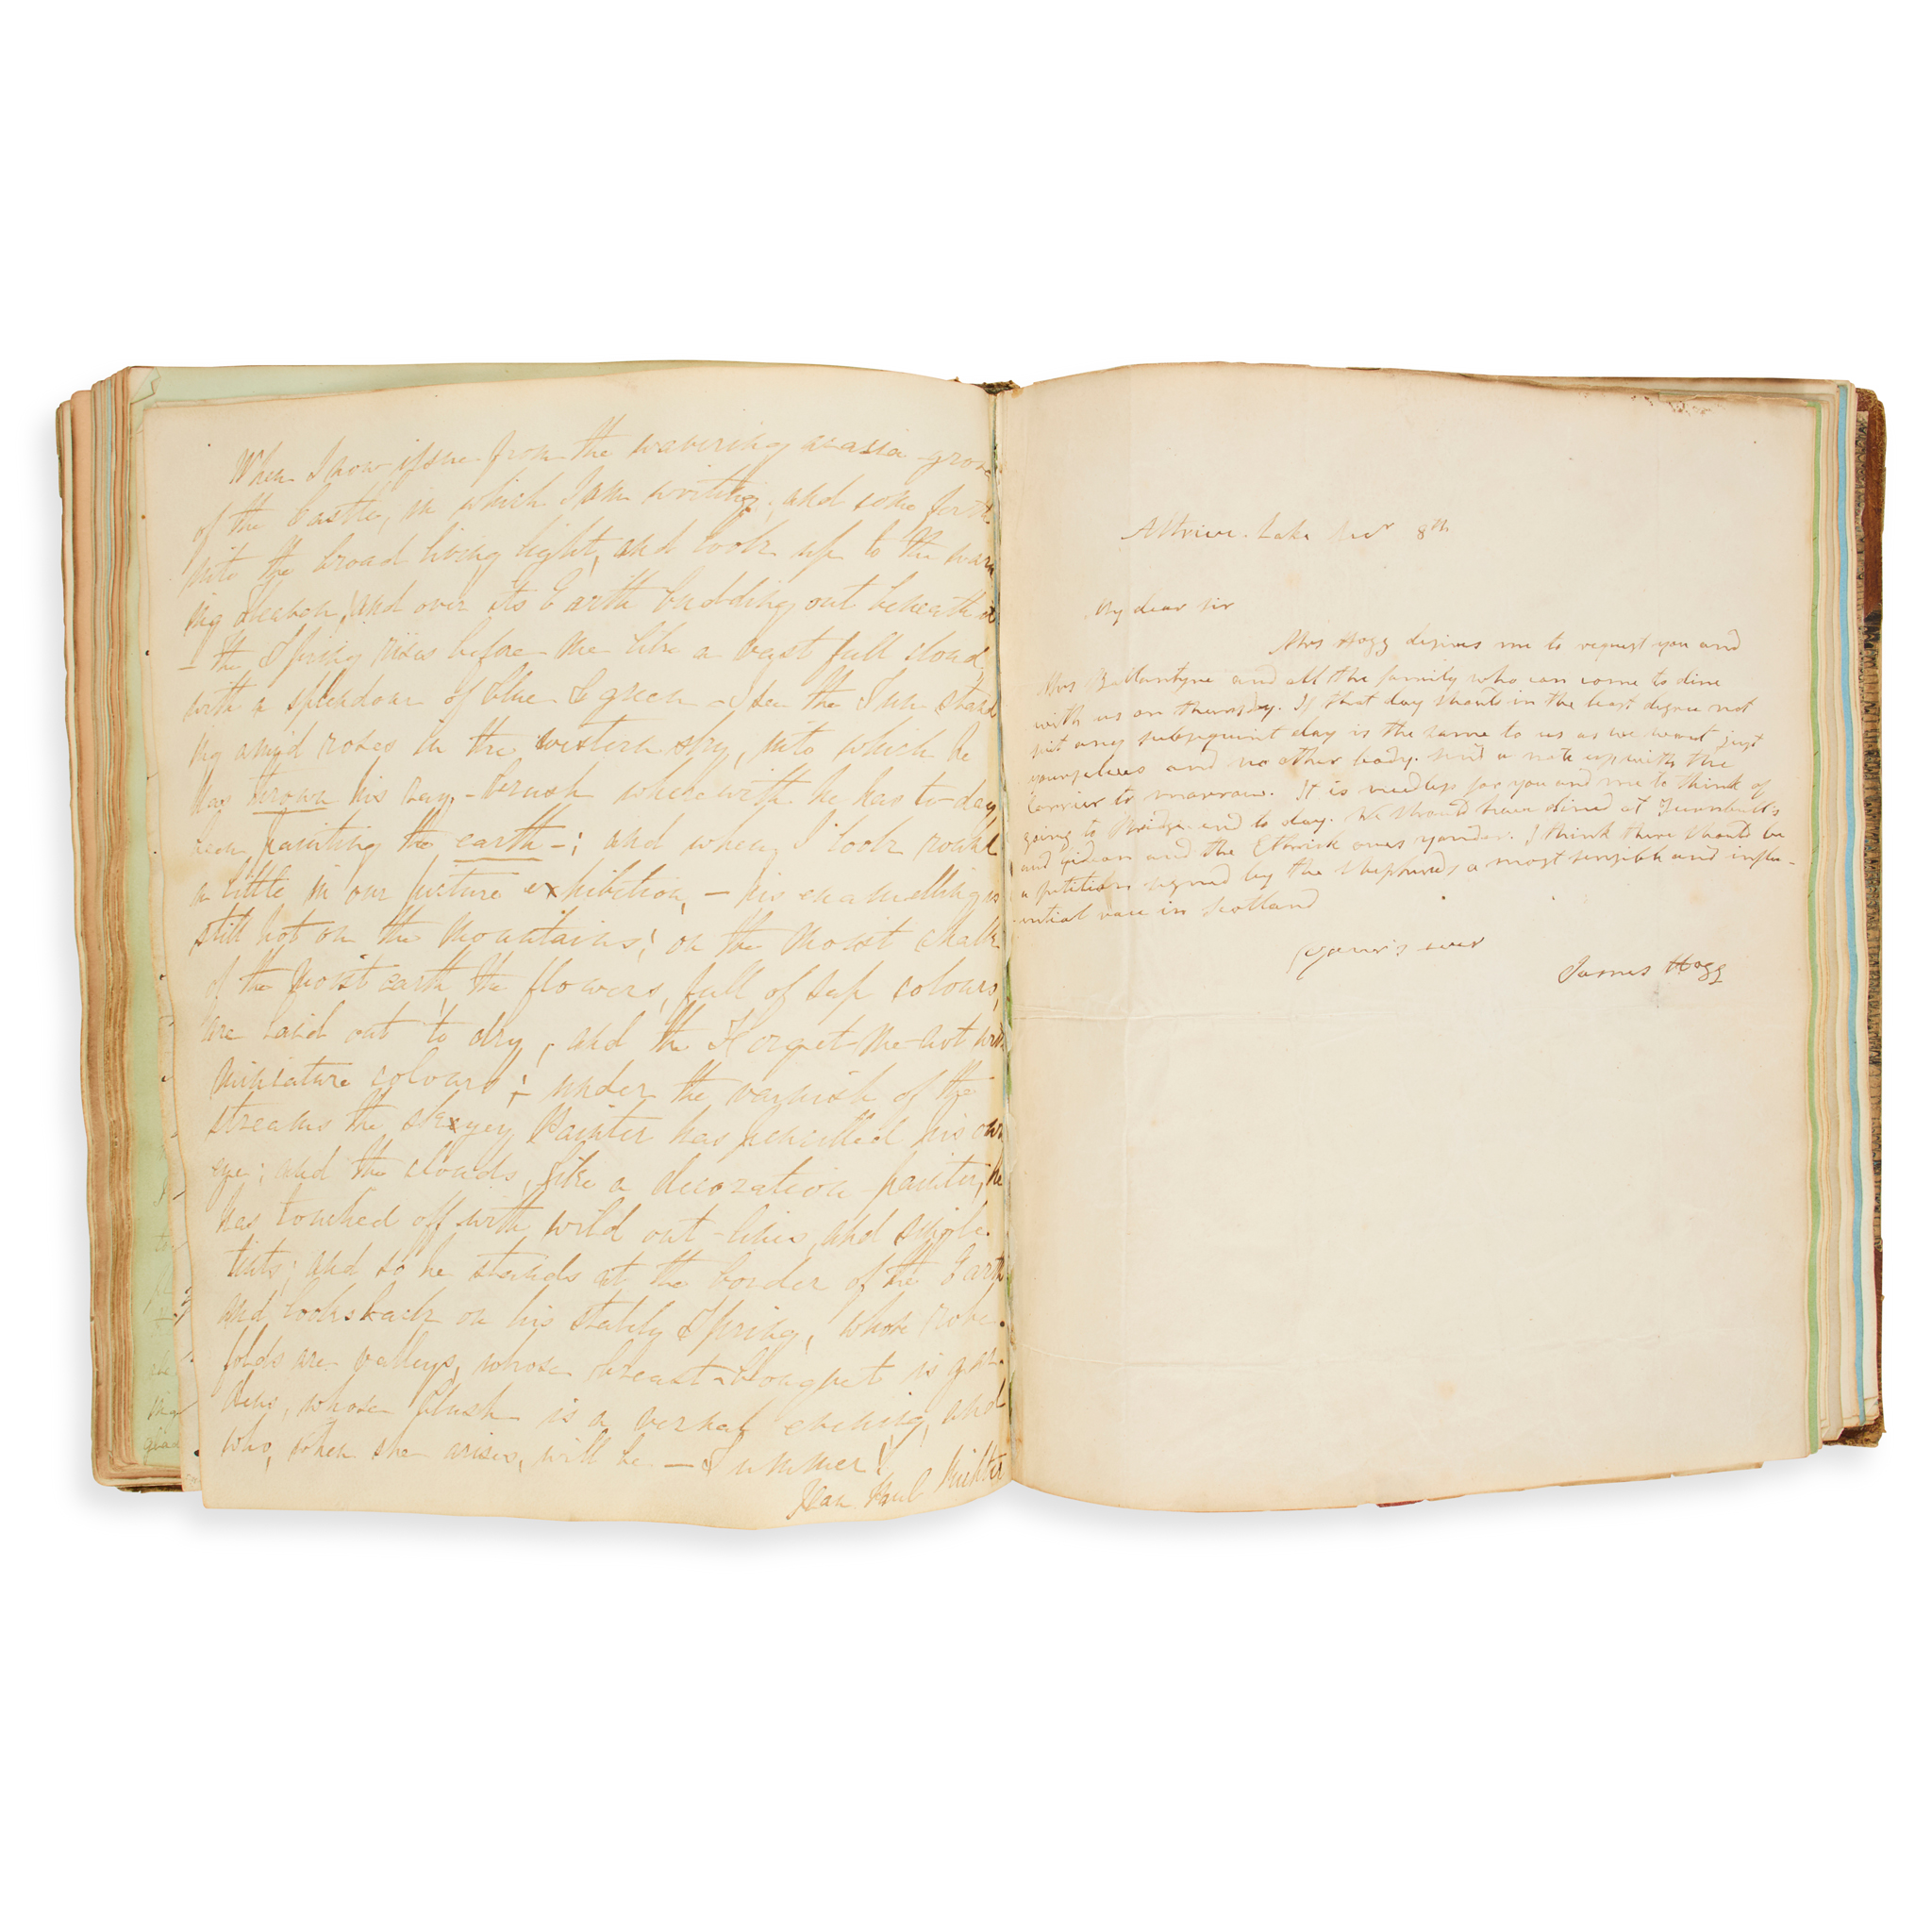 When I now issue from the wavering acacia grove
of the Castle, in which I am writing, and come forth
into the broad living light, and look up to the warm
ing Heaven, and over its Earth budding out beneath it
– the Spring rises before me like a vast full cloud,
with a splendour of blue & green – I see the Sun stand
ing amid roses in the western sky, into which he
has thrown his ray-brush wherewith he has to-day
been painting the earth –; and when I look round
a little in our picture exhibition, – his enamelling is
still hot on the mountains; on the moist chalk
of the moist earth, the flowers, full of sap colours,
are laid out to dry, and the Forget-me-not with
miniature colours; under the varnish of the
streams the skyey Painter has pencilled his own
eye; and the clouds, like a decoration-painter, he
has touched off with wild out-lines, and single
tints; and so he stands at the border of the Earth
and looks back on his stately Spring, whose robe-
folds are valleys, whose breast-bouquet is gar-
dens, whose blush is a vernal evening, and
who, when she arises, will be – Summer!
Jean Paul Richter
Altrive Lake Novr 8th
My dear Sir
Mrs Hogg desires me to request you and
Mrs Ballantyne and all the family who can come to dine
with us on thursday. If that day should in the least degree not
suit any subsequent day is the same to us as we want just
yourselves and no other body. Send a note up with the
Carrier to morrow. It is needless for you and me to think of
going to Bridge-end to day. We should have dined at Turnbull's
and Gideon and the Ettrick ones yonder. I think there should be
a petition signed by the Shepherds a most sensible and influ-
ential race in Scotland
Yours ever
James Hogg